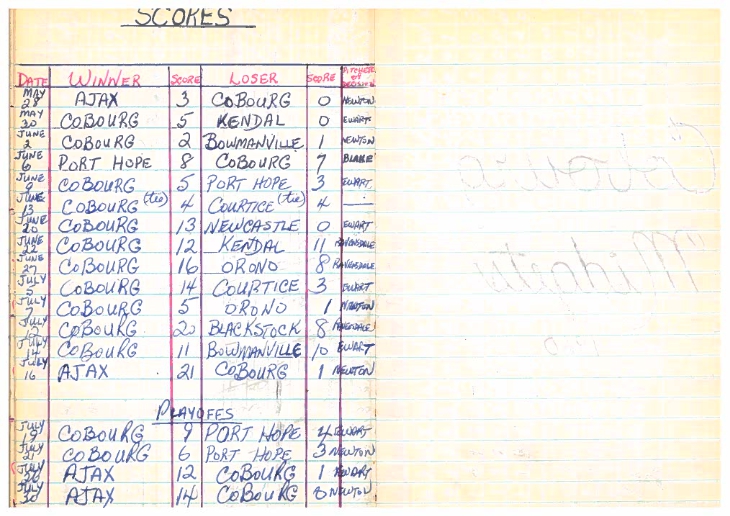 SCORES
DATE WINNER SCORE LOSER SCORE PITCHER OF DECISION
MAY 28 AJAX 3 COBOURG 0 NEWTON
MAY 30 COBOURG 5 KENDAL 0 EWART
JUNE 2 COBOURG 2 BOWMANVILLE 1 NEWTON
JUNE 6 PORT HOPE 8 COBOURG 7 BLAKE
JUNE COBOURG 5 PORT HOPE 3 EWART
JUNE 13 COBOURG (tie) 4 COURTICE (tie) 4 —
JUNE 20 COBOURG 13 NEWCASTLE 0 EWART
JUNE 22 COBOURG 12 KENDAL 11
JUNE 27 COBOURG 16 ORONO 8
JULY 5 COBOURG 14 COURTICE 3 EWART
JULY 7 COBOURG 5 ORONO 1 NEWTON
JULY COBOURG 20 BLACKSTOCK 8
JULY 14 COBOURG 11 BOWMANVILLE 10 EWART
JULY 16 AJAX 21 COBOURG 1 NEWTON
PLAYOFFS
JULY 19 COBOURG 9 PORT HOPE 4 EWART
JULY 21 COBOURG 6 PORT HOPE 3 NEWTON
JULY 26 AJAX 12 COBOURG 1 EWART
JULY 30 AJAX 14 COBOURG 8 NEWTON